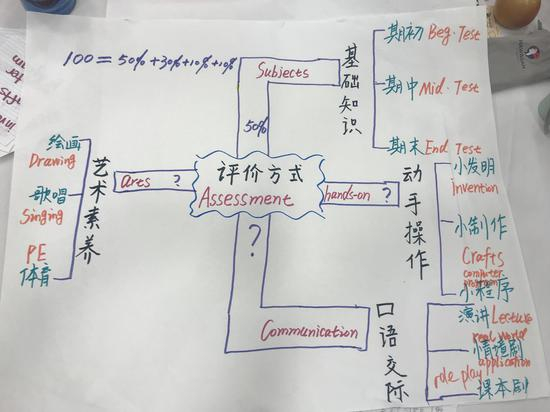 100 = 50% + 30% + 10% + 10%
评价方式
Assessment
Subjects
50%
基础知识
期初 Beg. Test
期中 Mid. Test
期末 End Test
hands-on ?
动手操作
小发明
invention
小制作
Crafts
computer
program
小程序
?
Communication
口语交际
演讲 Lecture
real world
情境剧
application
role play
课本剧
arts ?
艺术素养
绘画
Drawing
歌唱
Singing
PE
体育